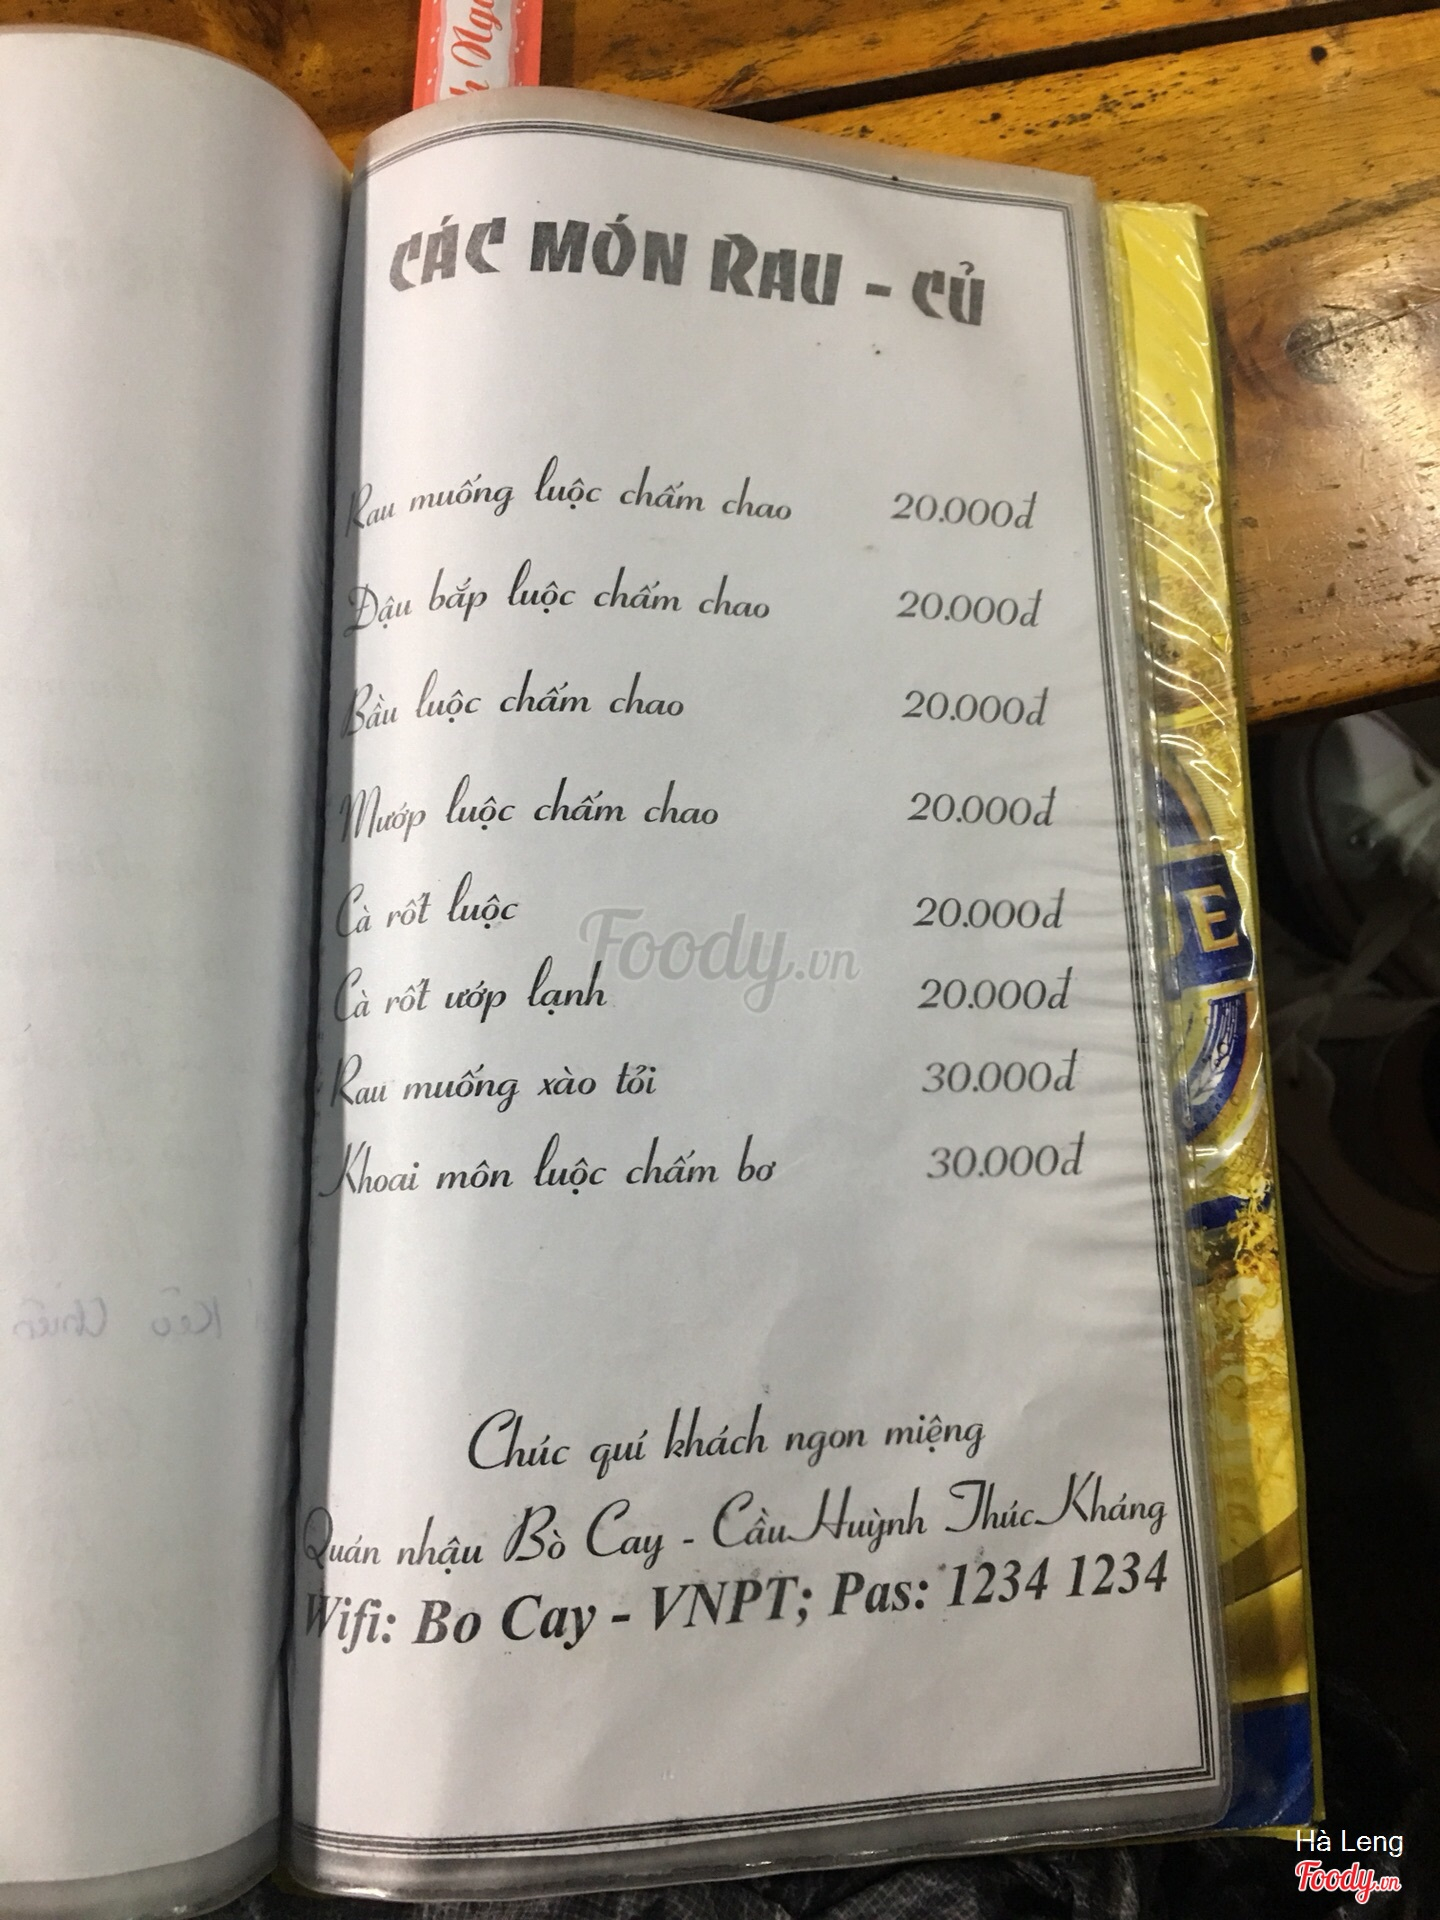 CÁC MÓN RAU - CỦ
Rau muống luộc chấm chao 20.000đ
Đậu bắp luộc chấm chao 20.000đ
Bầu luộc chấm chao 20.000đ
Mướp luộc chấm chao 20.000đ
Cà rốt luộc 20.000đ
Foody.vn
Cà rốt ướp lạnh 20.000đ
Rau muống xào tỏi 30.000đ
Khoai môn luộc chấm bơ 30.000đ
Chúc quí khách ngon miệng
Quán nhậu Bò Cay - Cầu Huỳnh Thúc Kháng
Wifi: Bo Cay - VNPT; Pas: 1234 1234
Hà Leng
Foody.vn